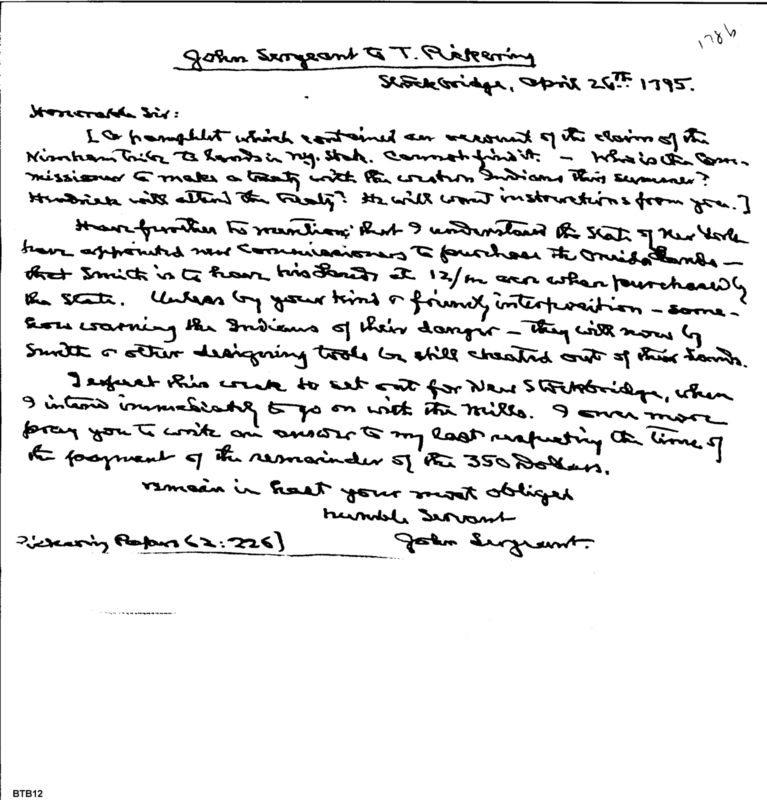 1786
John Sergeant to T. Pickering
Stockbridge, April 26th 1795.
Honorable Sir:
[A pamphlet which contained an account of the claim of the
Nimham tribe to lands in N.Y. State. Cannot find it. - Who is the Com-
missioner to make a treaty with the western Indians this summer?
Hendrick will attend the treaty? He will want instructions from you.]
I have further to mention, that I understand the State of New York
have appointed new Commissioners to purchase the Oneida Lands -
that Smith is to have his Lands at 12/ an acre when purchased by
the State. Unless by your kind & friendly interposition - some-
how warning the Indians of their danger - they will now by
Smith & other designing tools be still cheated out of their Lands.
I expect this week to set out for New Stockbridge, when
I intend immediately to go on with the Mills. I once more
pray you to write an answer to my last respecting the time of
the payment of the remainder of the 350 Dollars.
remain in hast your most obliged
humble Servant
Pickering Papers 62:226]
John Sergeant.
BTB12